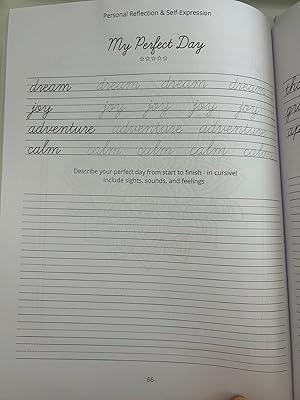 Personal Reflection & Self-Expression
My Perfect Day
☆☆☆☆☆
dream dream dream dream
joy joy joy joy joy
adventure adventure adventure
calm calm calm calm calm
Describe your perfect day from start to finish - in cursive!
Include sights, sounds, and feelings
66